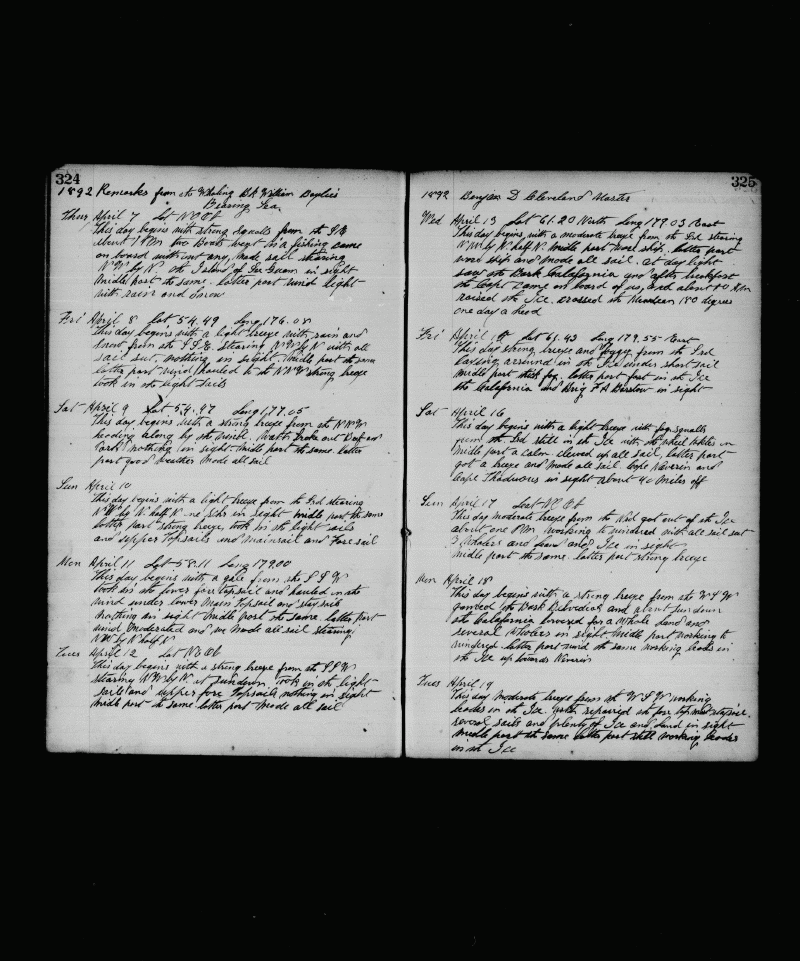 324
1892 Remarks from the Whaling Bk William Baylies
Bearing Sea
Thur April 7 Lat No Ob
This day begins with strong squalls from the S E
about 1 P.M. two Boats went in a fishing came
on board without any, made sail stearing
N W by N. the Island of in sight
middle part the same. latter part wind light
with rain and snow
Fri April 8 Lat 54.49 Long 176.08
This day begins with a light breeze with rain and
snow from the S S E. stearing N W by N with all
sail set. nothing in sight. middle part the same
latter part wind hauled to the N N W strong breeze
took in the light sails
Sat April 9 Lat 54.47 Long 177.05
This day begins with a strong breeze from the N N W
heading along by the wind. watch broke out Beef and
Pork nothing in sight middle part the same. latter
part good weather made all sail
Sun April 10
This day begins with a light breeze from the S rd stearing
N W by N half N. no ships in sight middle part the same
latter part strong breeze, took in the light sails
and upper Topsails and mainsail and Foresail
Mon April 11 Lat 58.11 Long 179.00
This day begins with a gale from the S S W
took in the lower fore topsail and hauled in the
wind under lower Main Topsail and staysails
nothing in sight middle part the same. latter part
wind moderated and we made all sail stearing
N W by N half N
Tues April 12 Lat No Ob
This day begins with a strong breeze from the S S W
stearing N W by N at sundown took in the light
sails and upper fore Topsails nothing in sight
middle part the same latter part made all sail
325
1892 Benjan D Cleveland Master
Wed April 13 Lat 61.20 North Long 179.03 East
This day begins with a moderate breeze from the S rd stearing
N W by N half N. middle part wore ship. latter part
wore ship and made all sail. at day light
saw the Bark California and after breakfast
the Capt came on board of us, and about 10 A.M.
raised the Ice. crossed the Meridian 180 degrees
one day a head
Fri April Lat 61.43 Long 179.55 East
This day strong breeze and foggy from the S rd
laying around in the Ice under short sail
middle part thick fog. latter part fast in the Ice
the California and Brig F A Barstow in sight
Sat April 16
This day begins with a light breeze with fog squalls
from the S rd still in the Ice with the wheel
middle part a calm clewed up all sail, latter part
got a breeze and made all sail. Cape Navarin and
Cape Thadeous in sight about 40 miles off
Sun April 17 Lat No Ob
This day moderate breeze from the N rd got out of the Ice
about one P.M. working to windered with all sail set
3 Whalers and Land and Ice in sight
middle part the same. latter part strong breeze
Mon April 18
This day begins with a strong breeze from the W S W
gamed the Bark Belvedere and about sundown
the California lowered for a Whale Land and
several Whalers in sight middle part working to
windered latter part wind the same working leads in
the Ice up towards Navarin
Tues April 19
This day moderate breeze from the W S W working
leades in the Ice watch repaired the fore top mast staysail.
several sails and plenty of Ice and Land in sight
middle part the same latter part still working leades
in the Ice